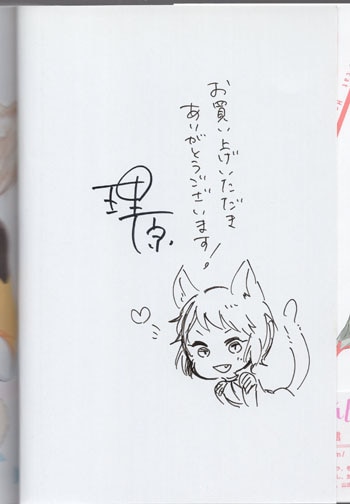 お買い上げいただき
ありがとうございます!
理原